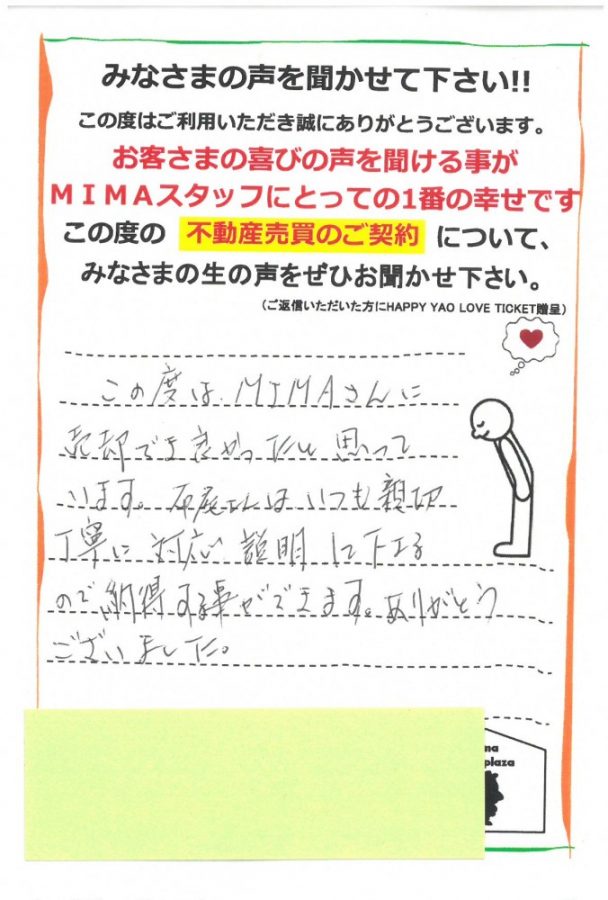 みなさまの声を聞かせて下さい!!
この度はご利用いただき誠にありがとうございます。
お客さまの喜びの声を聞ける事が
MIMAスタッフにとっての1番の幸せです
この度の 不動産売買のご契約 について、
みなさまの生の声をぜひお聞かせ下さい。
(ご返信いただいた方にHAPPY YAO LOVE TICKET贈呈)
この度は、MIMAさんに
売却でき良かったと思って
います。石尾さんはいつも親切
丁寧に対応説明して下さる
ので納得する事ができます。ありがとう
ございました。
na
plaza